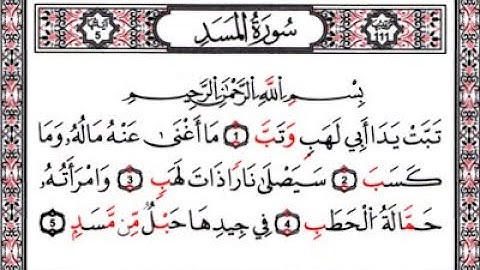 ترتيبها 111 سُورَةُ المَسَدِ آياتها 5
بِسْمِ اللَّهِ الرَّحْمَٰنِ الرَّحِيمِ
تَبَّتْ يَدَا أَبِي لَهَبٍ وَتَبَّ ١ مَا أَغْنَىٰ عَنْهُ مَالُهُ وَمَا
كَسَبَ ٢ سَيَصْلَىٰ نَارًا ذَاتَ لَهَبٍ ٣ وَامْرَأَتُهُ
حَمَّالَةَ الْحَطَبِ ٤ فِي جِيدِهَا حَبْلٌ مِّن مَّسَدٍ ٥